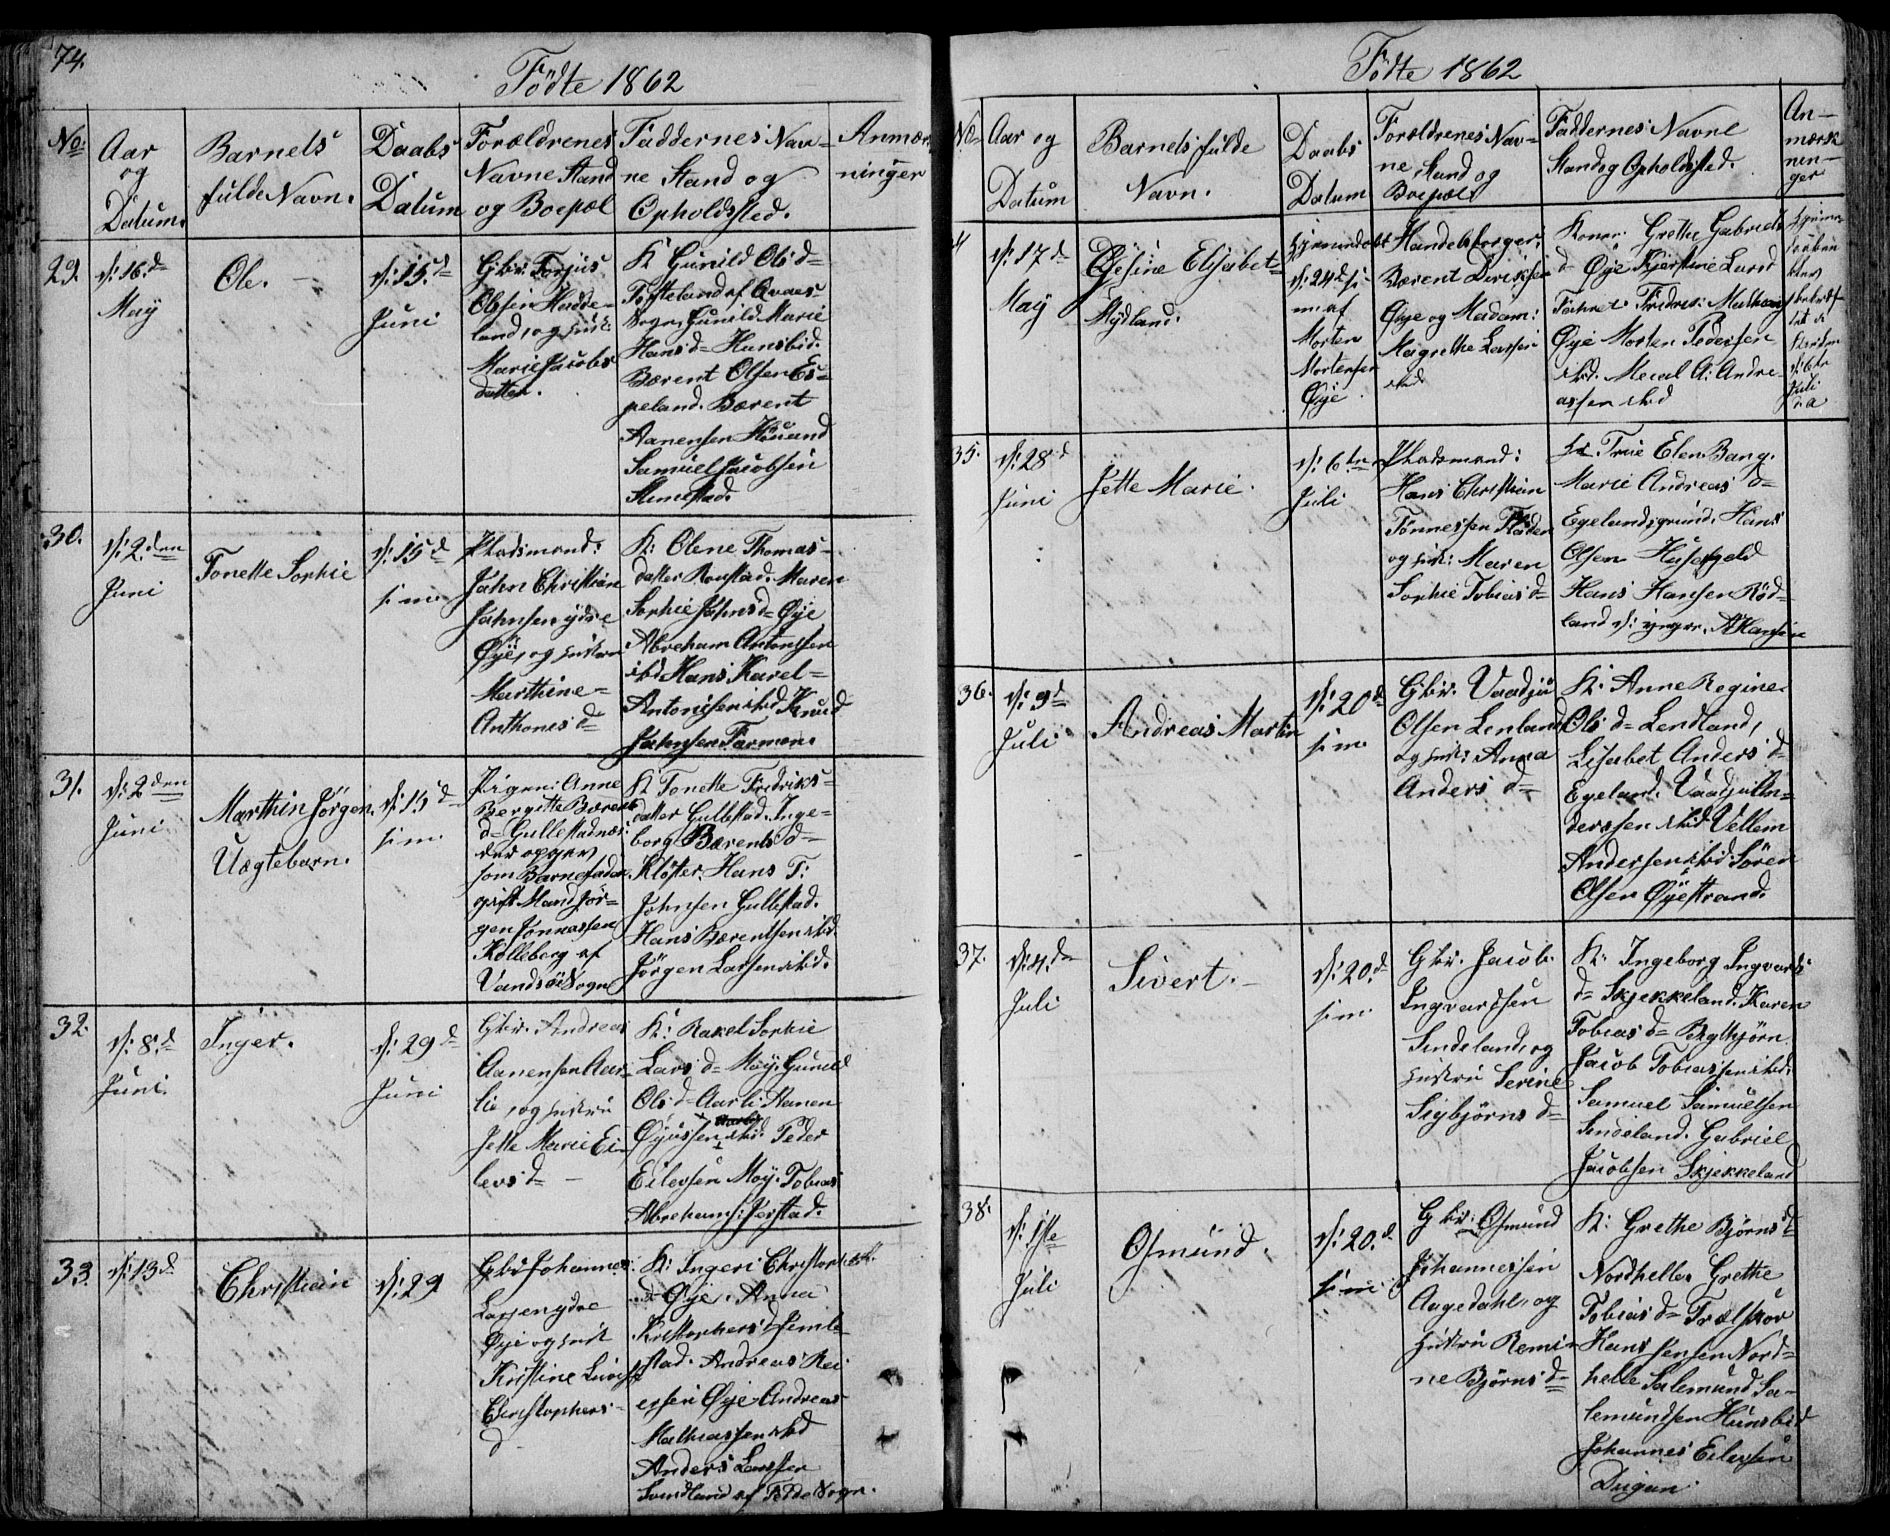 74.
Födte 1862
No: Aar og Datum. Barnets fulde Navn. Daabs Datum Forældrenes Navne Stand og Boepæl Faddernes Navne Stand og Opholdssted. Anmærkninger
29.
d: 16.d
May
Ole. –
d: 15.d
Juni
Gbr. Torjus
Olsen Hadde-
land, og Hust:
Marie Jacobs
datter.
K Gunild Ols d=
Fosseland af Qvaes-
Sogn, Gunild Marie
Hans d= Hunsbid.
Bærent Olsen Es-
peland. Bærent
Aanensen
Samuel Jacobsen
30.
d: 2.den
Juni
Tonette Sophie
d: 15.d
s: m.
Pladsmand:
Jahn Christian
Jahnsen ydre
Øye, og Hustru
Marthine-
Anthonis d=
K: Olene Thomas-
datter Maren
Sophie Jahns d= Øye
Abreham Antonsen
ibd Hans Karel-
Antonisen ibd Knud
Jahnsen
31.
d: 2den
Juni
Marthin Jörgen.
Uægtebarn.
d: 15 d
s: m.
Pigen: Anne
Bergitte Bærents
d= Gullestadnæs.
der opgav
som Barnefader
gift Mand Jör-
gen Jonnassen
Kolleberg af
Vandsöe Sogn
K Tonette Fredriks-
datter Gullestad. Inge-
borg Bærents d=
Klöfter, Hans T:
Johnsen Gullestad.
Hans Bærentsen ibd.
Jörgen Larsen ibd.
32.
d: 8.d
Juni.
Inger.
d: 29 d
Juni
Gbr. Andreas
Aanensen Aar-
lie, og Hustru
Jette Marie Ei-
levs d= –
K: Rakel Sophie
Lars d= Moy. Gunild
Ols d= Aarli Aanen
Øyussen Aarli ibd. Peder
Eilevsen Moy. Tobias
Abrehams: Jerstad.
33.
d: 13 d
Christian
d: 29
Gbr Johannes
Larsen ydre
Øye og Hust
Kristine Lovise
Christophers-
d
K: Ingeri Christophers
d= Øye. Anna
Kristophers d=
stad. Andreas Rei-
ersen Øye Andreas
Mathiassen ibd
Anders Larssen
Sundland af Fede Sogn.
Födte 1862
No Aar og Datum Barnets fulde Navn. Daabs Datum Forældrenes Navne, Stand og Boepæl Faddernes Navne Stand og Opholdssted. Anmærkninger
4
d: 17 d
May
Gesine Elisabet
Mydland.
Hjemmedøbt
d: 24 d s:
m: af
Morten
Mortensen
Øye.
Handelsborger:
Bærent Diriksen
Øye og Madam:
Magrethe Larsen
ibd
Koner: Grethe Gabriels
d= Øye Kjerstine Lars d
Fredrik:
Øye Morten Pedersen
ibd. A: Andre-
assen ibd
Hjemme-
daaben
blev
bekræf-
tet i
Kirken
d: 6te
Juli
d: a
35.
d: 28 d
Juni
Jette Marie.
d: 6te
Juli
Pladsmand:
Hans Christian
Tönnessen Fladen
og Hust: Maren
Sophie Tobias d=
Frue Elen Bang.
Marie Andreas d=
Egelandsgrund. Hans
Olsen
Hans Hansen Röd-
land d: yngr.
36.
d: 3 d
Juli
Andreas Martin
d: 20 d
s: m.
Gbr. Vaadju
Olsen Lenland
og Hust: Anna
Anders d=
K: Anne Regine
Ols d= Lendland,
Lisabet Anders d=
Egeland. Vaadju An-
derssen ibd Vellem
Andersen ibd: Sören
Olsen Øyestrand.
37.
d: 4. d
Juli
Sivert. –
d: 20. d
s: m.
Gbr. Jacob
Ingvardsen
Sindeland, og
Hustru Serine
Sigbjörns d=
K: Ingeborg Ingvards
d= Skjekkeland. Karen
Tobias d= Bytbjörn.
Jacob Tobiassen ibd:
Samuel Samuelsen
Sindeland. Gabriel
Jacobsen Skjekkeland
38.
d: 1ste
Juli
Osmund.
d: 20. d
s: m
Gbr: Osmund
Johannessen
Aagedahl, og
Hustru Remi-
ne Björns d=
K: Grethe Björns d=
Nordhelle. Grethe
Tobias d= Trælskor
Hans Jensen Nord-
helle Salemund Sa-
lemundsen Hunsbid
Johannes Eilevsen
Dugan.